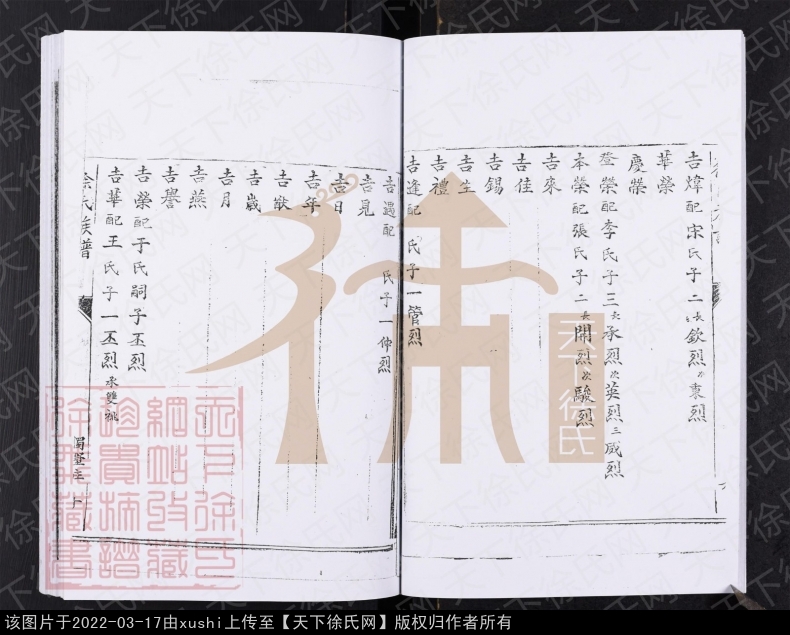 吉煒配宋氏子二長欽烈次秉烈
華榮
慶榮
登榮配李氏子三長承烈次英烈三威烈
本榮配張氏子二長開烈次駿烈
吉來
吉佳
吉錫
吉生
吉禮
吉逢配 氏子一管烈
吉遇配 氏子一仲烈
吉見
吉日
吉年
吉猷
吉歲
吉月
吉燕
吉譽
吉榮配于氏嗣子丕烈
吉華配王氏子一丕烈承雙祧
徐氏族譜
天下徐氏
天下徐氏网
该图片于2022-03-17由xushi上传至【天下徐氏网】版权归作者所有